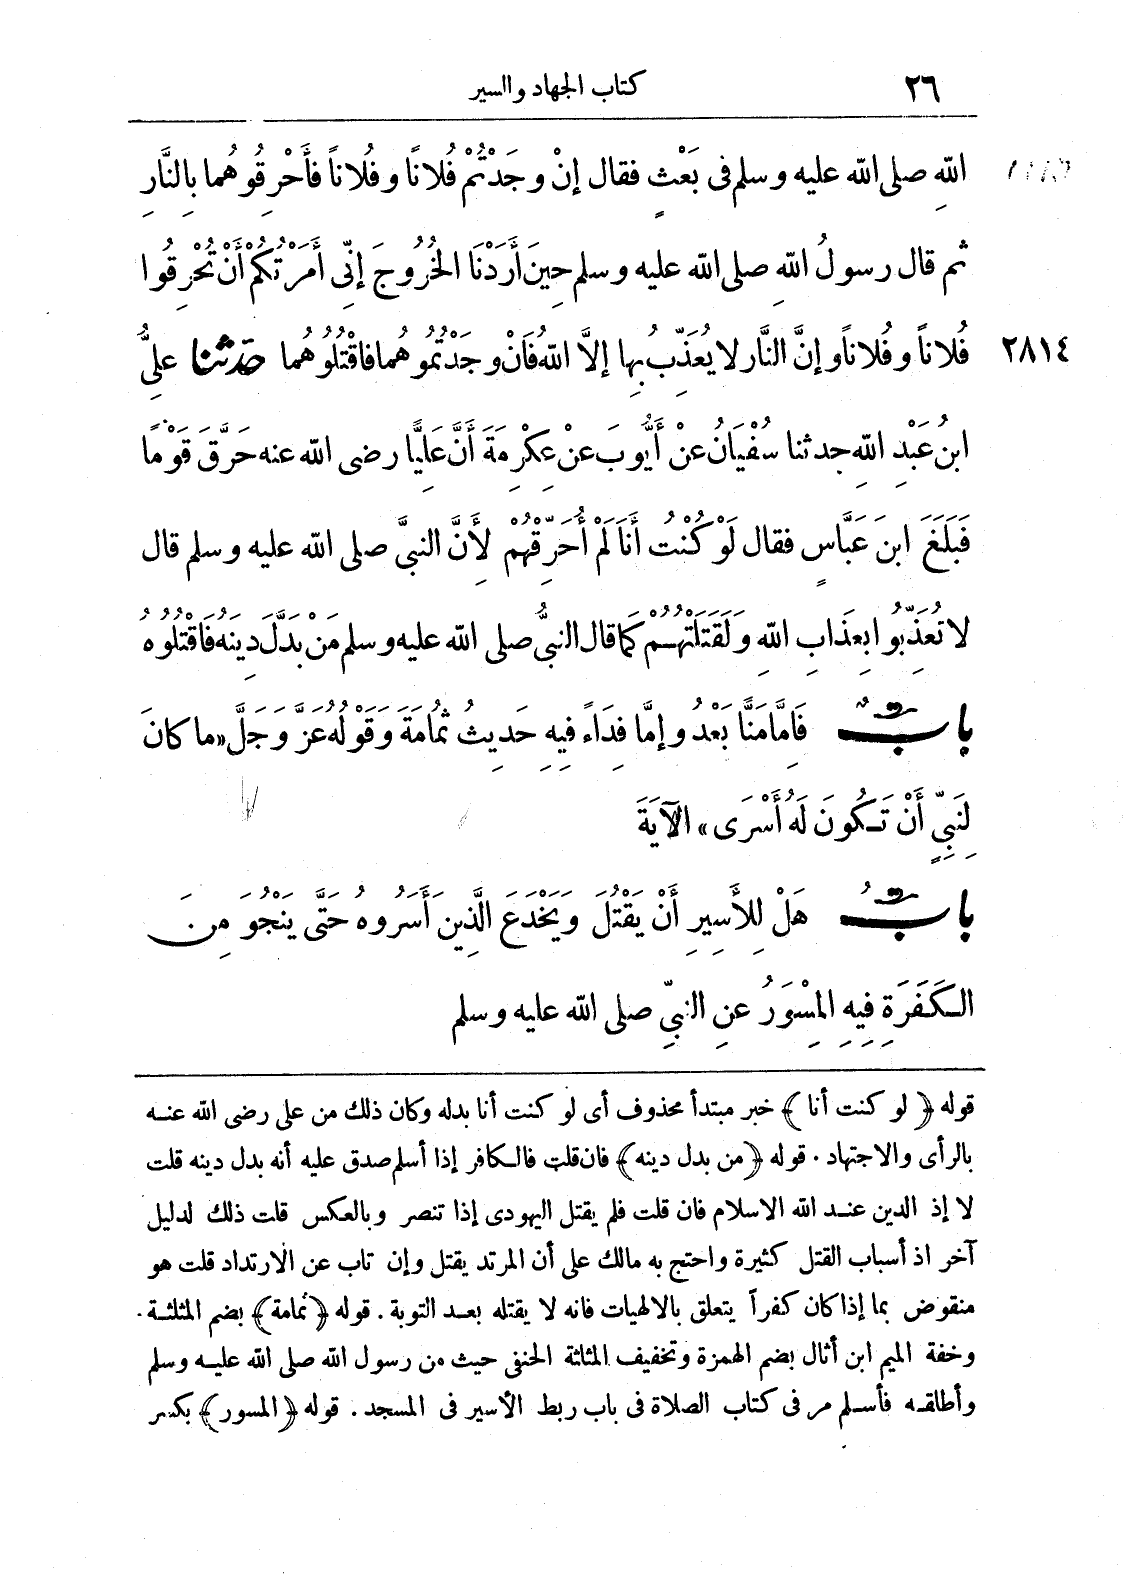 ٢٦ كتاب الجهاد والسير
اللهِ صلى الله عليه وسلم فى بَعْثٍ فقال إنْ وجَدْتُمْ فُلانًا وفُلاناً فأَحْرِقُوهُما بِالنَّارِ
ثم قال رسولُ اللهِ صلى الله عليه وسلم حِينَ أَرَدْنَا الخُرُوجَ إنِّى أَمَرْتُكُمْ أَنْ تُحْرِقُوا
٢٨١٤ فُلاناً وفُلاناً وإنَّ النَّار لا يُعَذِّبُ بِها إلاَّ اللهُ فَانْ وجَدْتُمُوهُما فاقْتُلُوهُما حدثنا علىُّ
ابنُ عَبْدِ اللهِ حدثنا سُفْيَانُ عنْ أَيُّوبَ عنْ عِكْرِمَةَ أَنَّ عَلِيًّا رضى الله عنه حَرَّقَ قَوْمًا
فَبَلَغَ ابنَ عَبَّاسٍ فقال لَوْ كُنْتُ أَنَا لَمْ أُحَرِّقْهُمْ لِأَنَّ النبىَّ صلى الله عليه وسلم قال
لا تُعَذِّبُوا بِعَذَابِ اللهِ وَلَقَتَلْتُهُمْ كَما قال النبىُّ صلى الله عليه وسلم مَنْ بَدَّلَ دِينَهُ فَاقْتُلُوهُ
بابٌ فَامَّا مَنًّا بَعْدُ وإمَّا فِدَاءً فيهِ حَدِيثُ ثُمَامَةَ وَقَوْلُهُ عَزَّ وَجَلَّ « ما كانَ
لِنَبِىٍّ أَنْ تَكُونَ لَهُ أَسْرَى » الآيَةَ
بابٌ هَلْ لِلأَسِيرِ أَنْ يَقْتُلَ وَيَخْدَعَ الَّذِينَ أَسَرُوهُ حَتَّى يَنْجُوَ مِنَ
الكَفَرَةِ فِيهِ المِسْوَرُ عنِ النبىِّ صلى الله عليه وسلم
قوله ﴿ لو كنت أنا ﴾ خبر مبتدأ محذوف أى لو كنت أنا بدله وكان ذلك من على رضى الله عنه
بالرأى والاجتهاد. قوله ﴿من بدل دينه﴾ فان قلت فالكافر إذا أسلم صدق عليه أنه بدل دينه قلت
لا إذ الدين عند الله الاسلام فان قلت فلم يقتل اليهودى إذا تنصر وبالعكس قلت ذلك لدليل
آخر اذ أسباب القتل كثيرة واحتج به مالك على أن المرتد يقتل وإن تاب عن الارتداد قلت هو
منقوض بما إذا كان كفراً يتعلق بالالهيات فانه لا يقتله بعد التوبة. قوله ﴿ثمامة﴾ بضم المثلثة.
وخفة الميم ابن أثال بضم الهمزة وتخفيف المثلثة الحنفى حيث من رسول الله صلى الله عليه وسلم
وأطلقه فأسلم مر فى كتاب الصلاة فى باب ربط الأسير فى المسجد. قوله ﴿المسور﴾ بكسر